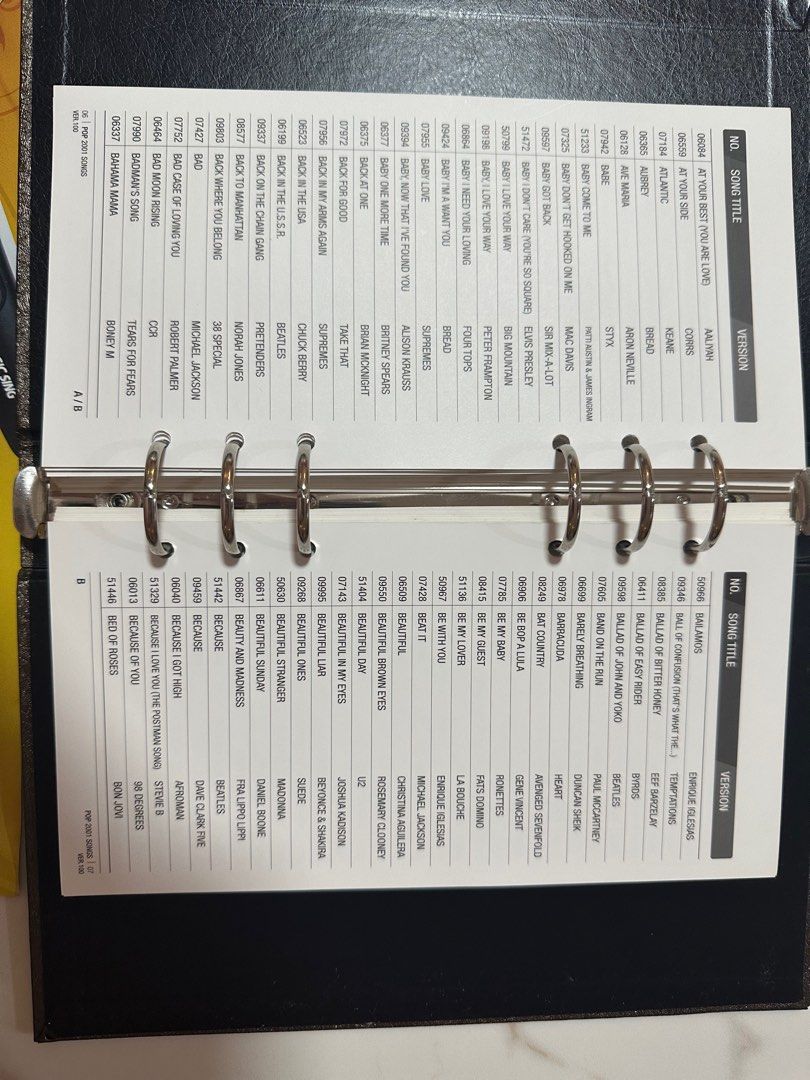 NO. SONG TITLE VERSION
06084 AT YOUR BEST (YOU ARE LOVE) AALIYAH
06559 AT YOUR SIDE CORRS
07184 ATLANTIC KEANE
06365 AUBREY BREAD
06128 AVE MARIA ARON NEVILLE
07942 BABE STYX
51233 BABY COME TO ME PATTI AUSTIN & JAMES INGRAM
07325 BABY DON'T GET HOOKED ON ME MAC DAVIS
09597 BABY GOT BACK SIR MIX-A-LOT
51472 BABY I DON'T CARE (YOU'RE SO SQUARE) ELVIS PRESLEY
50799 BABY I LOVE YOUR WAY BIG MOUNTAIN
09198 BABY, I LOVE YOUR WAY PETER FRAMPTON
06864 BABY I NEED YOUR LOVING FOUR TOPS
09424 BABY I'M A WANT YOU BREAD
07955 BABY LOVE SUPREMES
09394 BABY, NOW THAT I'VE FOUND YOU ALISON KRAUSS
06377 BABY ONE MORE TIME BRITNEY SPEARS
06375 BACK AT ONE BRIAN MCKNIGHT
07972 BACK FOR GOOD TAKE THAT
07956 BACK IN MY ARMS AGAIN SUPREMES
06523 BACK IN THE USA CHUCK BERRY
06199 BACK IN THE U.S.S.R. BEATLES
09337 BACK ON THE CHAIN GANG PRETENDERS
08577 BACK TO MANHATTAN NORAH JONES
09803 BACK WHERE YOU BELONG 38 SPECIAL
07427 BAD MICHAEL JACKSON
07752 BAD CASE OF LOVING YOU ROBERT PALMER
06464 BAD MOON RISING CCR
07990 BADMAN'S SONG TEARS FOR FEARS
06337 BAHAMA MAMA BONEY M
06 | POP 2001 SONGS A / B
VER.100
NO. SONG TITLE VERSION
50966 BAILAMOS ENRIQUE IGLESIAS
09346 BALL OF CONFUSION (THAT'S WHAT THE...) TEMPTATIONS
08385 BALLAD OF BITTER HONEY EEF BARZELAY
06411 BALLAD OF EASY RIDER BYRDS
09598 BALLAD OF JOHN AND YOKO BEATLES
07605 BAND ON THE RUN PAUL MCCARTNEY
06699 BARELY BREATHING DUNCAN SHEIK
06978 BARRACUDA HEART
08249 BAT COUNTRY AVENGED SEVENFOLD
06906 BE BOP A LULA GENE VINCENT
07785 BE MY BABY RONETTES
08415 BE MY GUEST FATS DOMINO
51136 BE MY LOVER LA BOUCHE
50967 BE WITH YOU ENRIQUE IGLESIAS
07428 BEAT IT MICHAEL JACKSON
06509 BEAUTIFUL CHRISTINA AGUILERA
09550 BEAUTIFUL BROWN EYES ROSEMARY CLOONEY
51404 BEAUTIFUL DAY U2
07143 BEAUTIFUL IN MY EYES JOSHUA KADISON
09995 BEAUTIFUL LIAR BEYONCE & SHAKIRA
09268 BEAUTIFUL ONES SUEDE
50630 BEAUTIFUL STRANGER MADONNA
06611 BEAUTIFUL SUNDAY DANIEL BOONE
06867 BEAUTY AND MADNESS FRA LIPPO LIPPI
51442 BECAUSE BEATLES
09459 BECAUSE DAVE CLARK FIVE
06040 BECAUSE I GOT HIGH AFROMAN
51329 BECAUSE I LOVE YOU (THE POSTMAN SONG) STEVIE B
06013 BECAUSE OF YOU 98 DEGREES
51446 BED OF ROSES BON JOVI
B POP 2001 SONGS | 07
VER.100
SING